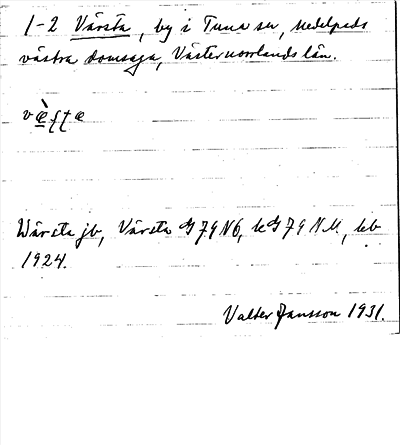 1-2 Värsta, by i Tuna sn, Medelpads
västra domsaga, Västernorrlands län.
Wärsta jb, Värsta G 79 N 6, k G 79 N.U., kb
1924.
Valter Jansson 1931.